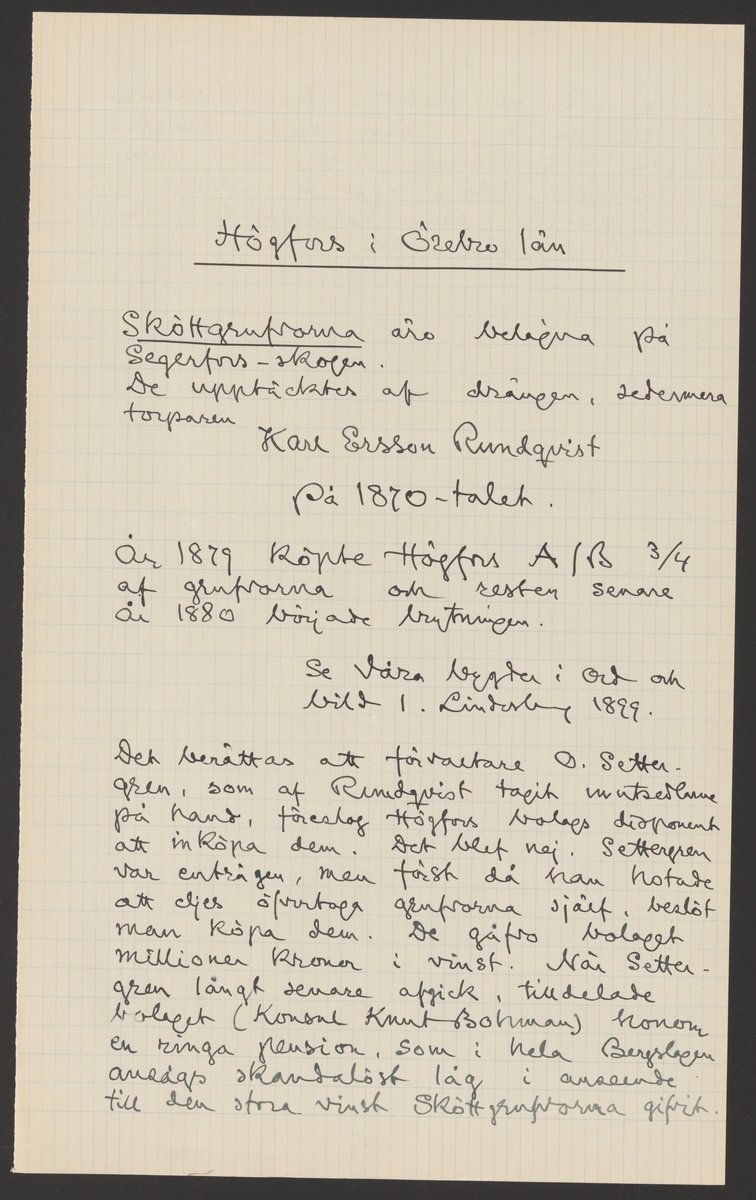 Högfors i Örebro län
Sköttgrufvorna äro belägna på
Segerfors-skogen.
De upptäcktes af drängen, sedermera
torparen
Karl Ersson Rundqvist
på 1870-talet.
År 1879 köpte Högfors A/B 3/4
af grufvorna och resten senare
År 1880 började brytningen.
Se Våra bygder i ord och
bild I. Lindesberg 1899.
Det berättas att förvaltare O. Setter-
gren, som af Rundqvist tagit inmutsedlarne
på hand, föreslog Högfors bolags disponent
att inköpa dem. Det blef nej. Settergren
var enträgen, men först då han hotade
att eljes öfvertaga grufvorna själf, beslöt
man köpa dem. De gåfvo bolaget
millioner kronor i vinst. När Setter-
gren långt senare afgick, tilldelade
bolaget (Konsul Knut Bohman) honom
en ringa pension, som i hela Bergslagen
ansågs skandalöst låg i anseende
till den stora vinst Sköttgrufvorna gifvit.